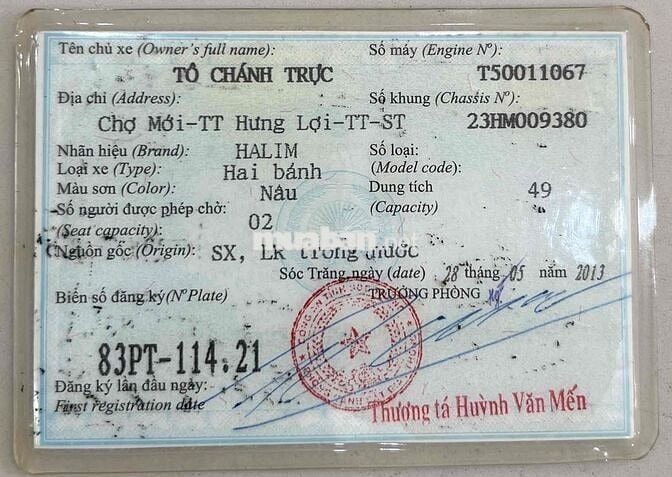 Tên chủ xe (Owner's full name): Số máy (Engine Nº):
TÔ CHÁNH TRỰC T50011067
Địa chỉ (Address): Số khung (Chassis Nº):
Chợ Mới-TT Hưng Lợi-TT-ST 23HM009380
Nhãn hiệu (Brand): HALIM Số loại:
Loại xe (Type): Hai bánh (Model code):
Màu sơn (Color): Nâu Dung tích 49
Số người được phép chở: 02 (Capacity)
(Seat capacity):
muaban.net
Nguồn gốc (Origin): SX, LR trong nước
Sóc Trăng, ngày (date) 28 tháng 05 năm 2013
Biển số đăng ký (Nº Plate) TRƯỞNG PHÒNG
83PT-114.21
Đăng ký lần đầu ngày:
First registration date Thượng tá Huỳnh Văn Mến